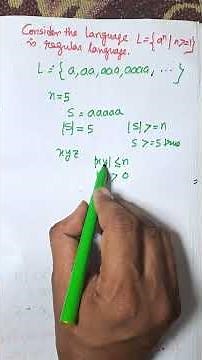 Consider the language L={aⁿ | n>=1}
is regular language.
L = {a, aa, aaa, aaaa, ...}
n=5
S = aaaaa
|S| = 5 |S| >= n
5 >= 5 true
xyz
|xy| ≤ n
> 0